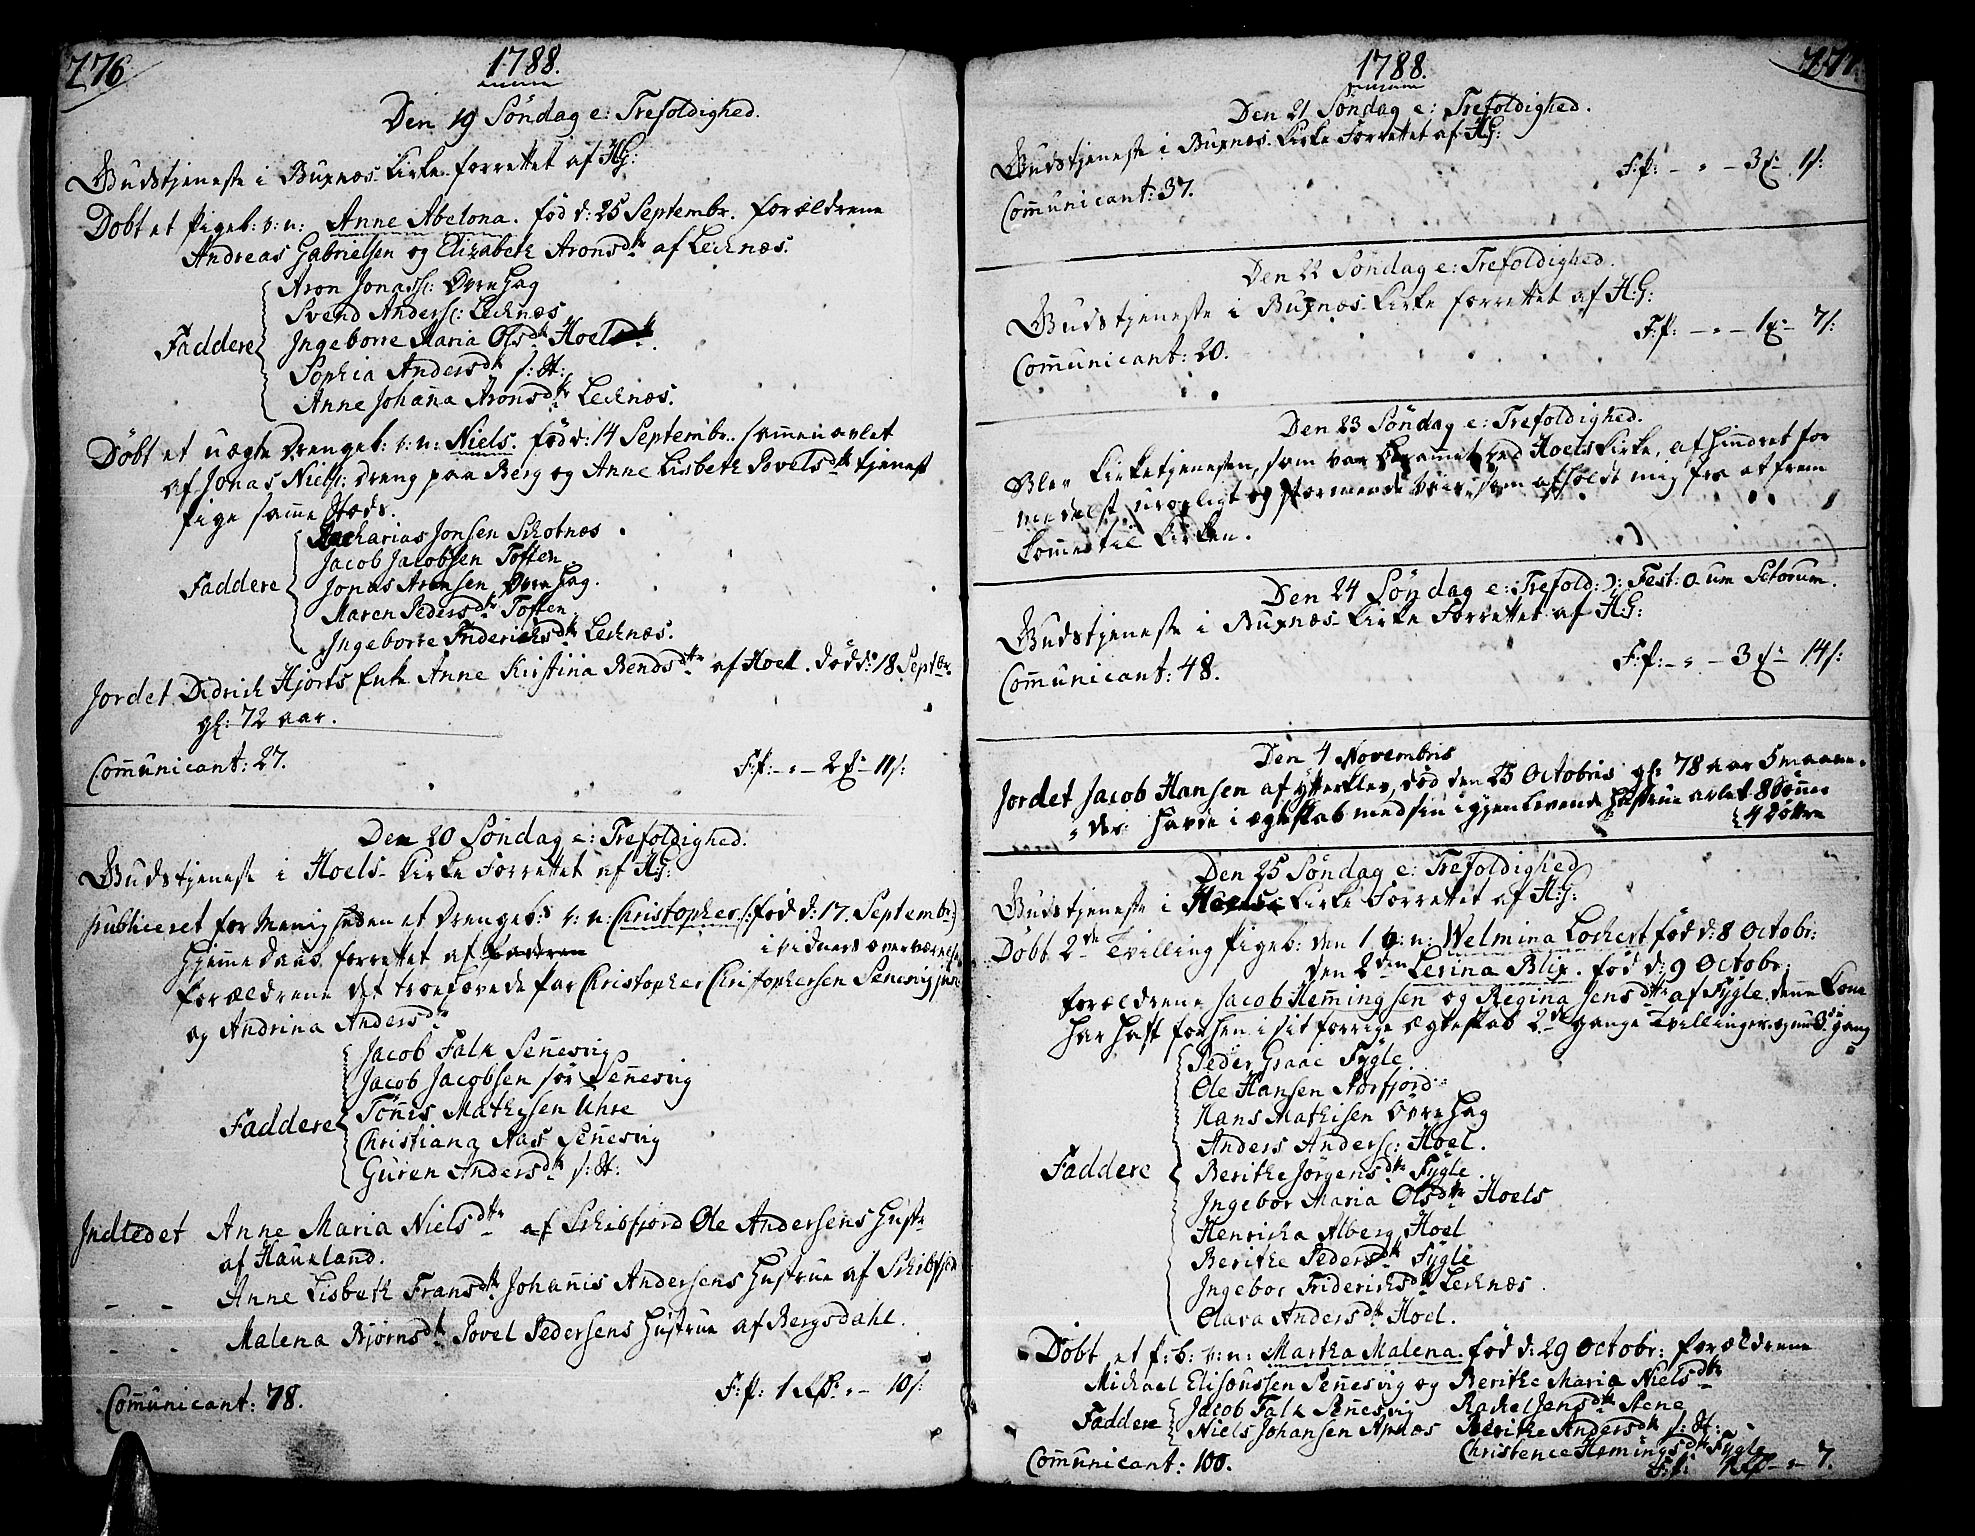 176
1788.
Den 19 Söndag e: Trefoldighed.
Gudstjeneste i Buxnæs Kirke forrettet af HG:
Döbt et Pigeb: v: n: Anne Abelona. föd d: 25 Septembr. forældrene
Andreas Gabrielsen og Elizabeth Aronsdtr af Lecknæs.
Aron Jonass: Övre Hag
Svend Anders: Lecknæs
Faddere Ingeborre Maria Olsdtr Hoel
Sophia Andersdtr s: St:
Anne Johanna Aronsdtr Lecknæs.
Döbt et uægte Drengeb: v: n: Niels. föd d: 14 Septembr. sammenavlet
af Jonas Niels: Dreng paa Berg og Anne Lisbeth Povelsdtr tjenest
pige samme Steds.
Zacharias Jonsen Schotnæs
Jacob Jacobsen Toften
Faddere Jonas Aronsen Övre Hag.
Maren Pedersdtr Toften
Ingeborre Friderichsdtr Lecknæs.
Jordet Didrich Hjorts Enke Anne Kristina Bendsdtr af Hoel. död d: 18 Septbr.
gl: 72 aar.
Communicant: 27.
F: p: - " - 2 - 11 s:
Den 20 Söndag e: Trefoldighed.
Gudstjeneste i Hoels- Kirke Forrettet af HG:
publiceret for Menigheden et Drengeb: v: n: Christopher (: föd d: 17. Septembr:)
Hjemme Daab forrettet af i Vidners overværelse
forældrene det troeforvede Par Christopher Christophersen Senesvig jun:
og Andrina Andersdtr
Jacob Falk Sennesvig
Jacob Jacobsen sör Sennesvig
Faddere Tönnes Mathisen Uhre
Christiana Aas Sennesvig
Guren Andersdtr s: St:
Indledet Anne Maria Nielsdtr af Schibfjord Ole Andersens Hustr
af Hauland.
- - Anne Lisbeth Fransdtr Johannis Andersens Hustrue af Schibfjord
- - Malena Bjørnsdtr Povel Pedersens Hustrue af Bergsdahl.
F: p: 1 - 10 s:
Communicant: 78.
177.
1788.
Den 21 Söndag e: Trefoldighed.
Gudstjeneste i Buxnæs- Kirke Forrettet af HG:
F: p: - " - 3 - 1 s:
Communicant: 37.
Den 22 Söndag e: Trefoldighed.
Gudstjeneste i Buxnæs- Kirke forrettet af H: G:
F: p: - " - 1 - 7 s:
Communicant: 20.
Den 23 Söndag e: Trefoldighed.
Blev Kirketjenesten, som var berammet ved Hoels Kirke, af hindret for
medelst uroligt og stormende Veir, som afholdt mig fra at frem
komme til Kirken.
Den 24 Söndag e: Trefold: ɔ: Fest: Oum Sctorum.
Gudstjeneste i Buxnæs- Kirke Forrettet af H: G:
F: p: - " - 3 - 14 s:
Communicant: 48.
Den 4 Novembris
Jordet Jacob Hansen af Ytterklev, död den 25 Octobris gl: 78 aar 5 maane-
der. Havde i ægteskab med sin igjenlevende Hustrue avlet 8 Sönner
4 Döttre
Den 25 Söndag e: Trefoldighed
Gudstjeneste i Hoels Kirke Forrettet af H: G:
Döbt 2de Tvilling Pigeb: den 1 v: n: Welmina Lockert föd d: 8 Octobr:
den 2den Lerina Blix. föd d: 9 Octobr:
forældrene Jacob Hemmingsen og Regina Jensdtr af Fygle, denne Kone
har haft forhen i sit forrige ægteskab 2de gange Tvillinger og nu 3die gang
Peder Graae Fygle.
Ole Hansen Storfjord
Hans Mathisen Övre Hag
Anders Anders: Hoel.
Faddere Berithe Jörgensdtr Fygle
Ingebor Maria Olsdtr Hoels
Henricha Alberg Hoel
Berithe Pedersdtr Fygle
Ingebor Friderichsdtr Lecknæs.
Clara Andersdtr Hoel.
Döbt et p: b: v: n: Martha Malena. föd d: 29 Octobr: forældrene
Michael Elisæussen Sennesvig og Berithe Maria Nielsdtr
Faddere Jacob Falk Sennesvig Rachel Jensdtr Stene
Niels Johansen Apnæs Berithe Andersdtr s: St:
Christence Hemingsdtr Fygle
Communicant: 100.
F: p: 1 - " - 7.